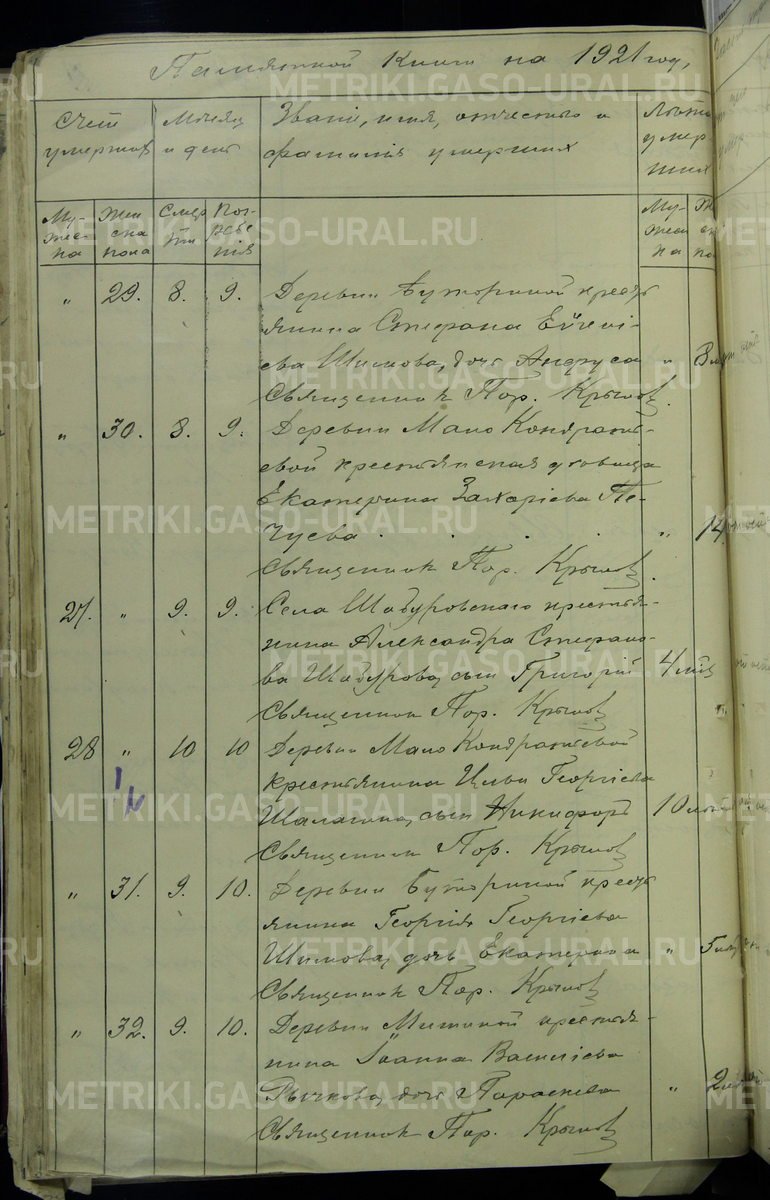 Памятной Книги на 1921 год,
Счет умерших
Месяц и день
Званіе, имя, отчество и фамилія умерших
Лѣта умерших
Мужеска
Женска пола
Смерти
Погребенія
Мужеска
„ 29. 8. 9. Деревни Буториной крестьянина Стефана
Шимова, дочь Анфуса „
Священник Пор. Крылов.
„ 30. 8. 9. Деревни Мало Кондратьевой
крестьянская
Екатерина Захаріева
„ 14
Священник Пор. Крылов.
27. „ 9. 9. Села Шабуровскаго крестьянина
Александра Стефанова
Шабурова, сын Григорій 4
Священник Пор. Крылов
28 „ 10 10 Деревни Мало Кондратьевой
крестьянина Ильи Георгіева
Шалагина, сын Никифоръ 10
Священник Пор. Крылов
„ 31. 9. 10. Деревни Буториной крестьянина
Георгія Георгіева
Шимова, дочь Екатерина „ 5
Священник Пор. Крылов
„ 32. 9. 10. Деревни крестьянина
Іоанна Василіева
Рычкова, дочь Параскева „ 2
Священник Пор. Крылов
METRIKI.GASO-URAL.RU